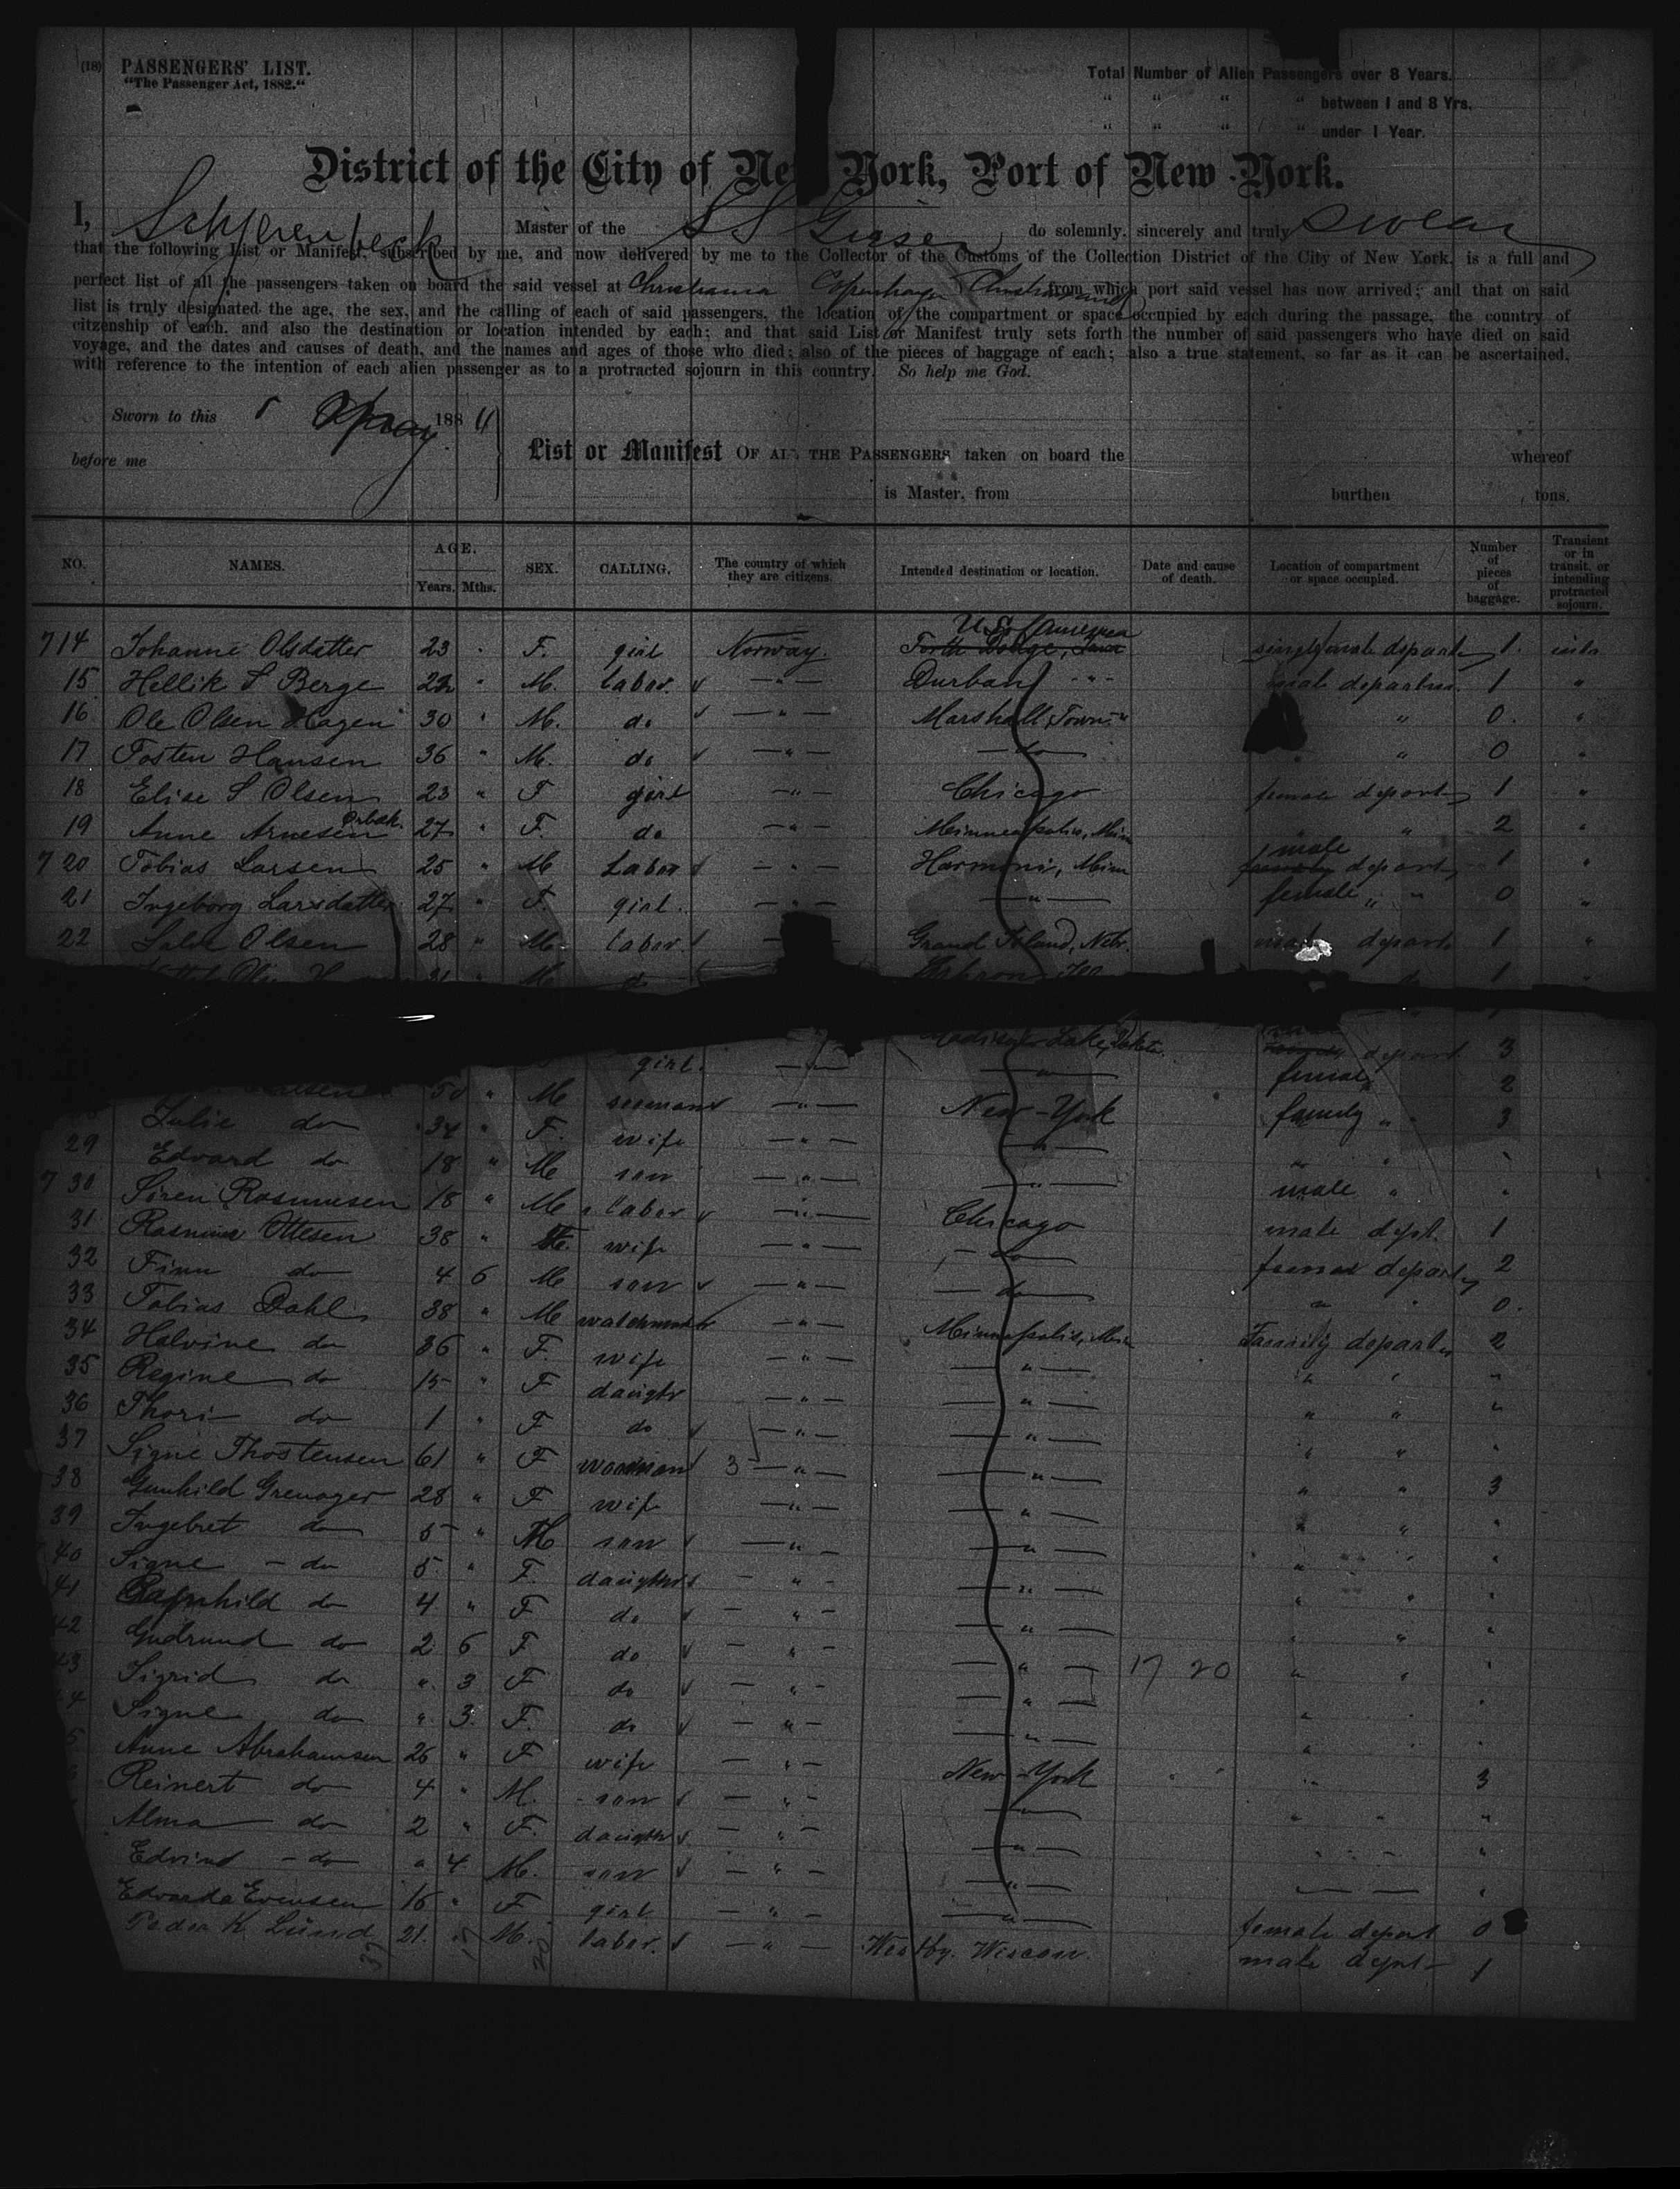 (18) PASSENGERS' LIST.
"The Passenger Act, 1882."
Total Number of Alien Passengers over 8 Years.
" " " " between 1 and 8 Yrs.
" " " " under 1 Year.
District of the City of New York, Port of New-York.
I, Master of the SS Geiser do solemnly, sincerely and truly swear
that the following List or Manifest, subscribed by me, and now delivered by me to the Collector of the Customs of the Collection District of the City of New York, is a full and
perfect list of all the passengers taken on board the said vessel at Christiania Copenhagen Christiansand from which port said vessel has now arrived; and that on said
list is truly designated the age, the sex, and the calling of each of said passengers, the location of the compartment or space occupied by each during the passage, the country of
citzenship of each, and also the destination or location intended by each; and that said List or Manifest truly sets forth the number of said passengers who have died on said
voyage, and the dates and causes of death, and the names and ages of those who died; also of the pieces of baggage of each; also a true statement, so far as it can be ascertained,
with reference to the intention of each alien passenger as to a protracted sojourn in this country. So help me God.
Sworn to this 188
before me
List or Manifest OF ALL THE PASSENGERS taken on board the whereof
is Master, from burthen tons.
NO. NAMES. AGE. Years. Mths. SEX. CALLING. The country of which they are citizens. Intended destination or location. Date and cause of death. Location of compartment or space occupied. Number of pieces of baggage. Transient or in transit, or intending protracted sojourn.
U.S. of America
714 Johanne Olsdatter 23 " F. girl Norway. Forth Dodge, single female departm 1.
15 Hellik S Berge 22 " M. labor. " Durban " male departm. 1 "
16 Ole Olsen Hagen 30 " M. do " Marshall Town " " 0. "
17 Tosten Hansen 36 " M. do " do " 0 "
18 Elise S Olsen 23 " F girl " Chicago female departm 1 "
19 Anne Arnesen 27 " F. do " Minneapolis, Minn " " 2 "
720 Tobias Larsen 25 " M Labor " Harmoni, Minn male depart 1 "
21 Ingeborg Larsdatter 27 " F. girl. " " female " " 0 "
22 Olsen 28 " M. labor. Grand Island, Nebr. male departm 1 "
31 " M. do 1 "
Lake, Dakota. depart 3
girl. " " female 2
50 " M seaman " New-York family " " 3
Julie do 34 " F. wife " "
29 Edvard do 18 " M son " " male "
730 Søren Rasmusen 18 " M labor " Chicago male dept. 1
31 Ottesen 38 " F. wife " do female departm 2
32 Finn do 4 6 M son " do " " 0.
33 Tobias Dahl 38 " M " Minneapolis, Minn Family departm 2
34 Halvine do 36 " F. wife " " " " "
35 Regine do 15 " F daughtr " " " " "
36 Thori do 1 " F do " " " " "
37 Signe Thostensen 61 " F 3 " " " " 3
38 Gunhild Grenager 28 " F wife " " " " "
39 Ingebret do 5 " M son " " " " "
40 Signe - do 5 " F. daughter " " " " "
41 Ragnhild do 4 " F do " " " " "
42 Gudrund do 2 6 F do " " 17 20 " " "
43 Sigrid do " 3 F do " " " " "
44 Signe do " 3. F. do " " " " "
5 Anne Abrahamsen 26 " F wife " New-York " 3
Reinert do 4 " M. son " " " " "
Alma do 2 " F. daughter " " "
Edvind - do " 4 M. son " " "
Edvarda Evensen 16 " F girl " " female depart 0
Peder K. Lund 21. M. labor. " Westby. Wiscon. male dept 1